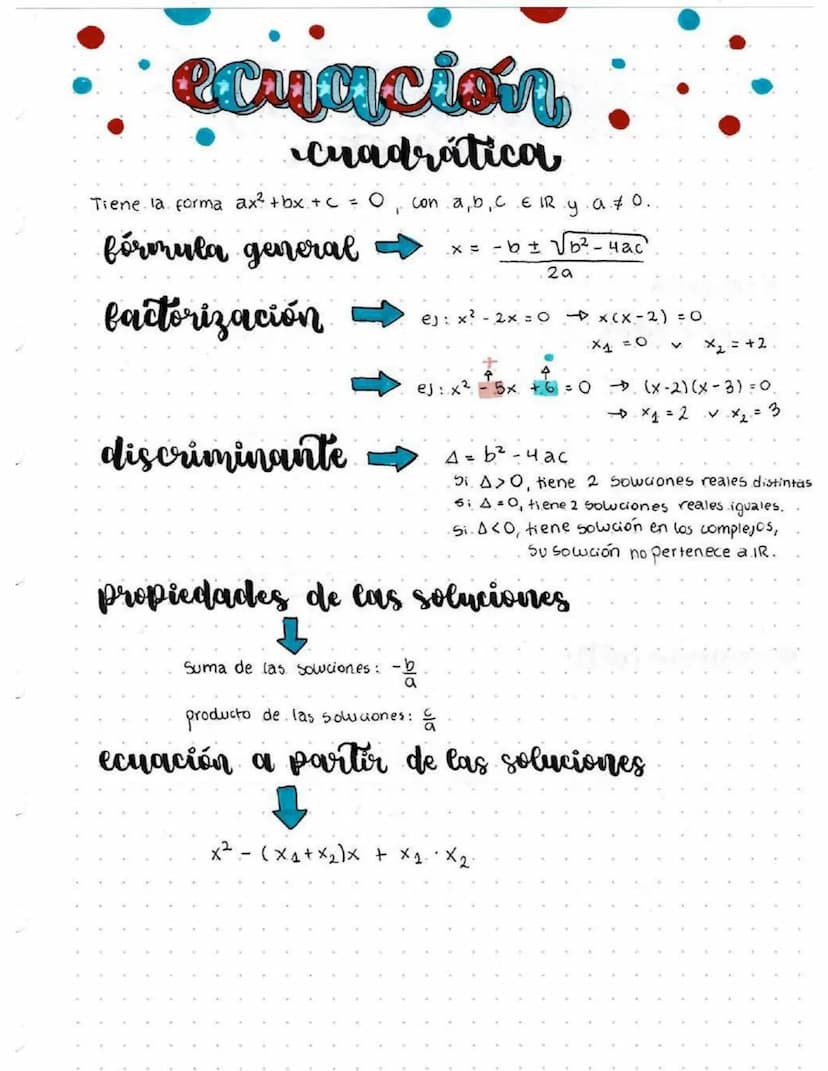 ecuación
cuadrática
Tiene la forma ax² + bx + c = 0, con a,b,c ∈ IR y a ≠ 0.
fórmula general → x = (-b ± √(b² - 4ac)) / 2a
factorización → ej: x² - 2x = 0 → x(x-2) = 0
x₁ = 0 ∨ x₂ = +2
+ •
→ ej: x² - 5x + 6 = 0 → (x-2)(x-3) = 0
→ x₁ = 2 ∨ x₂ = 3
discriminante → Δ = b² - 4ac
Si Δ > 0, tiene 2 soluciones reales distintas
Si Δ = 0, tiene 2 soluciones reales iguales.
Si Δ < 0, tiene solución en los complejos,
su solución no pertenece a IR.
propiedades de las soluciones
suma de las soluciones: -b/a
producto de las soluciones: c/a
ecuación a partir de las soluciones
x² - (x₁+x₂)x + x₁ · x₂